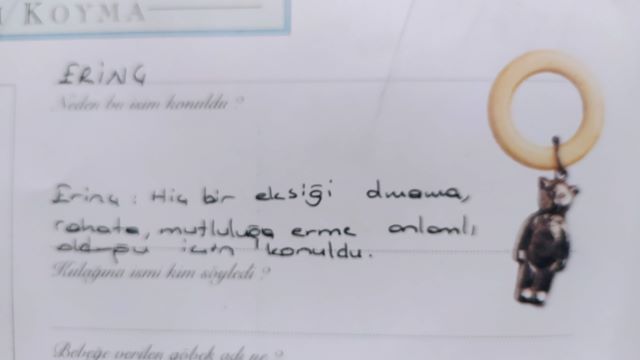 /KOYMA
ERİNÇ
Neden bu isim konuldu ?
Erinç : Hiç bir eksiği olmama,
rahata, mutluluğa erme anlamlı
olduğu için konuldu.
Kulağına ismi kim söyledi ?
Bebeğe verilen göbek adı ne ?